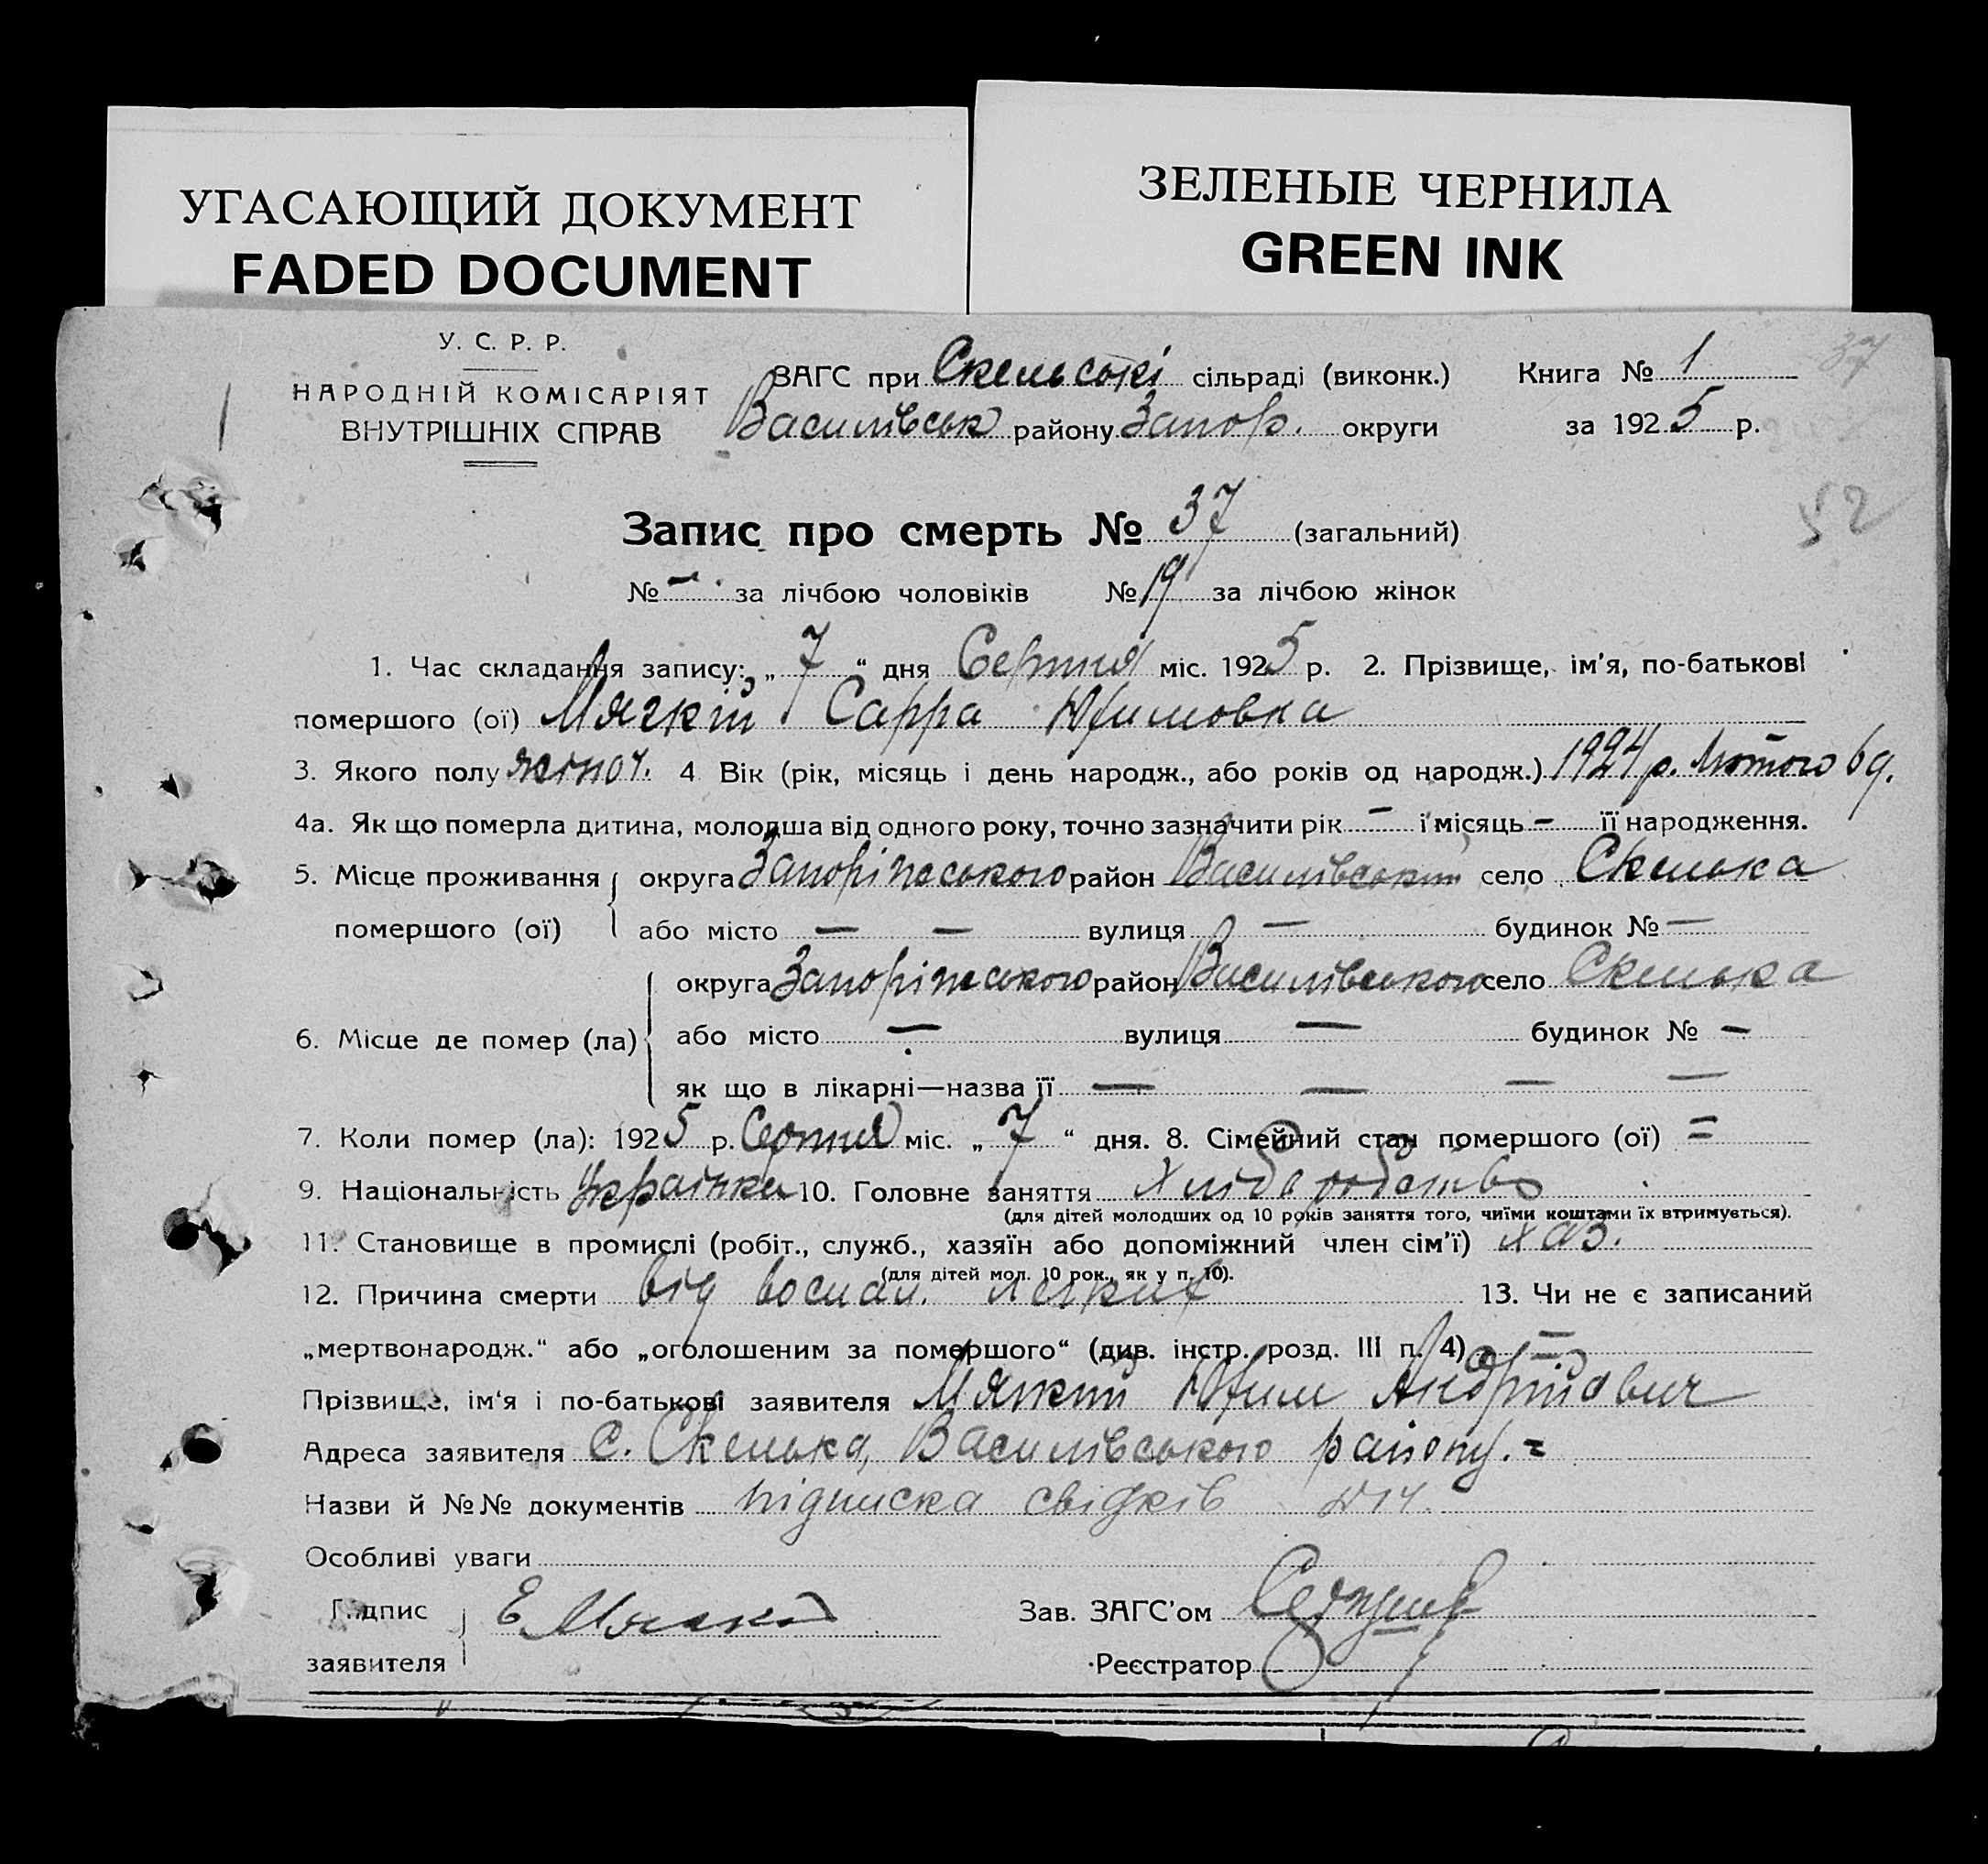 УГАСАЮЩИЙ ДОКУМЕНТ
FADED DOCUMENT
ЗЕЛЕНЫЕ ЧЕРНИЛА
GREEN INK
У. С. Р. Р.
НАРОДНІЙ КОМІСАРІЯТ
ВНУТРІШНІХ СПРАВ
ЗАГС при Скельські сільраді (виконк.) Книга № 1 37
Василівськ району Запор. округи за 1925 р.
52
Запис про смерть № 37 (загальний)
№ — за лічбою чоловіків № 19 за лічбою жінок
1. Час складання запису: „ 7 “ дня Серпня міс. 1925 р. 2. Прізвище, ім'я, по-батькові
помершого (ої) Мягкій Сарра Юфимовна
3. Якого полу жіноч. 4 Вік (рік, місяць і день народж., або років од народж.) 1924 р. Лютого 6 д.
4а. Як що померла дитина, молодша від одного року, точно зазначити рік — і місяць — її народження.
5. Місце проживання помершого (ої) округа Запоріжського район Василівський село Скелька
або місто — — вулиця — будинок № —
6. Місце де помер (ла) округа Запоріжського район Василівського село Скелька
або місто — вулиця — будинок № —
як що в лікарні—назва її — — — —
7. Коли помер (ла): 1925 р. Серпня міс. „ 7 “ дня. 8. Сімейний стан помершого (ої) =
9. Національність Українка 10. Головне заняття Хліборобство
(для дітей молодших од 10 років заняття того, чиїми коштами їх втримується).
11. Становище в промислі (робіт., служб., хазяїн або допоміжний член сім'ї) хаз.
(для дітей мол. 10 рок., як у п. 10).
12. Причина смерти від воспал. легких 13. Чи не є записаний
„мертвонародж.“ або „оголошеним за помершого“ (див. інстр. розд. III п. 4) =
Прізвище, ім'я і по-батькові заявителя Мягкий Юфим Андрійович
Адреса заявителя с. Скелька, Василівського району. =
Назви й №№ документів підписка свідків №14.
Особливі уваги
Підпис заявителя Е Мягкий
Зав. ЗАГС'ом
Реєстратор